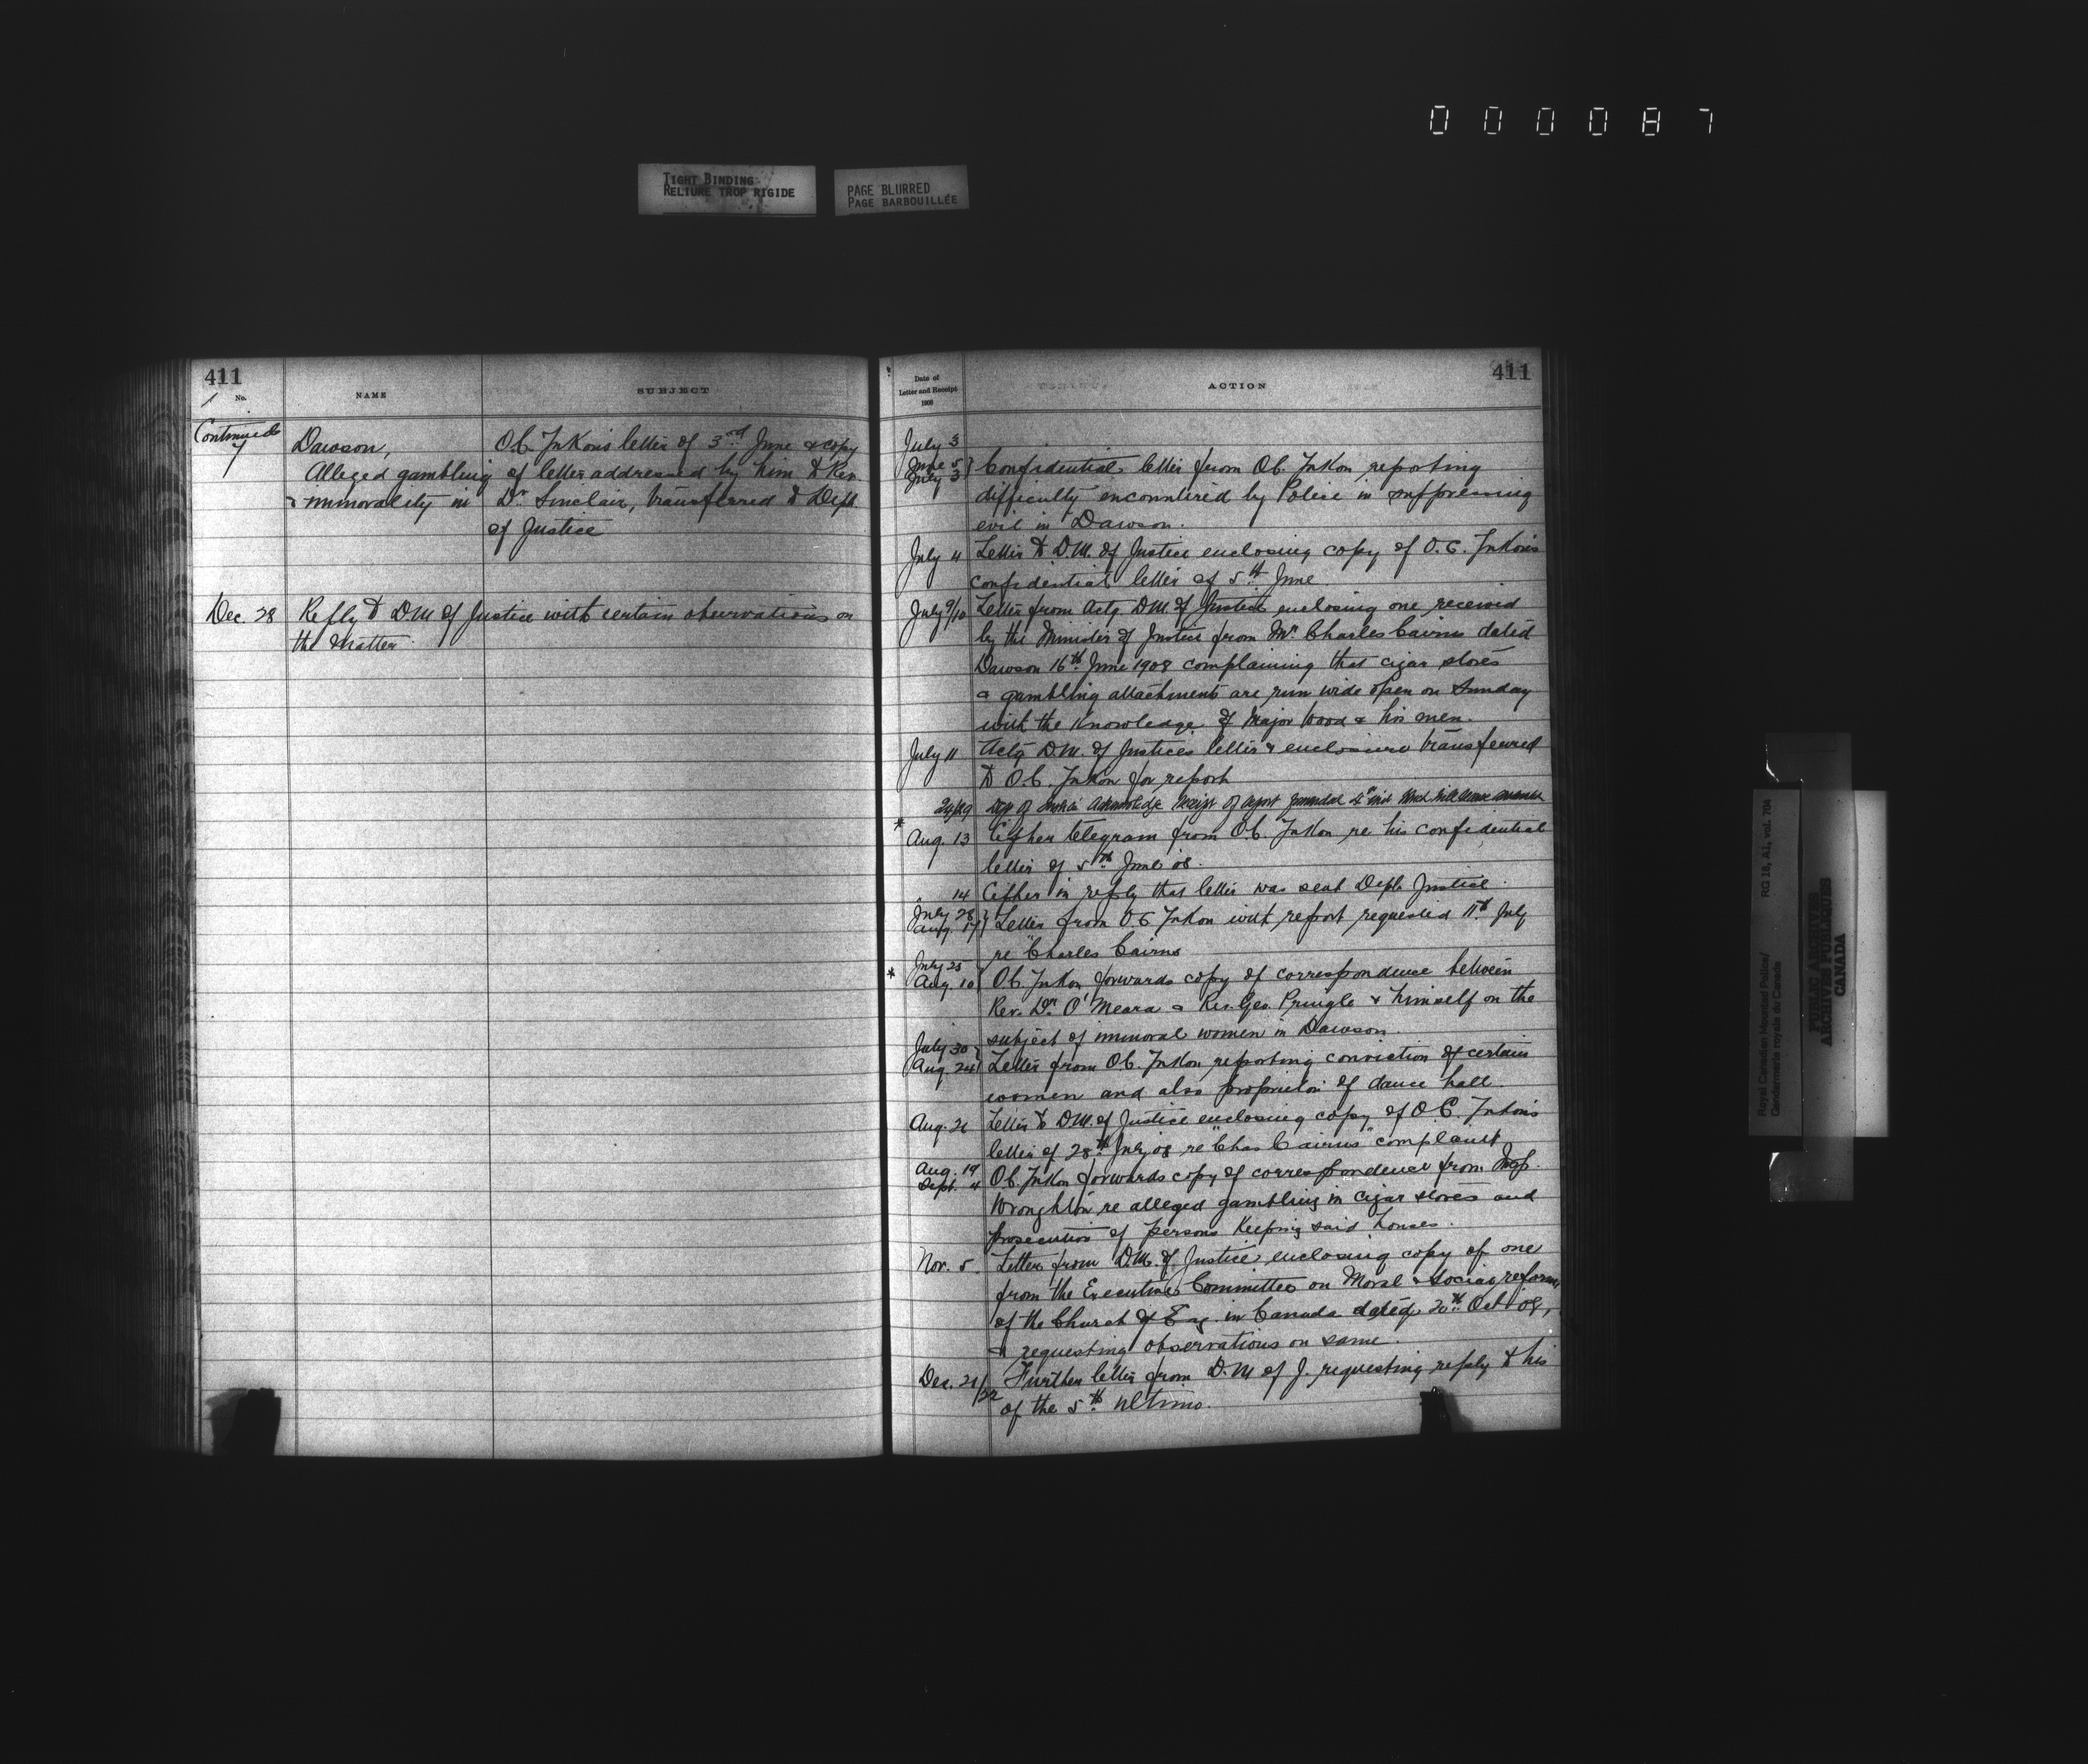 000087
TIGHT BINDING
RELIURE TROP RIGIDE
PAGE BLURRED
PAGE BARBOUILLÉE
411
No.
NAME
SUBJECT
Continued
7
Dawson,
Alleged gambling
& immorality in
O.C. Yukon's letter of 3rd June & copy
of letter addressed by him to Rev.
Dr. Sinclair, transferred to Dept.
of Justice
Dec. 28 Reply to D.M. of Justice with certain observations on
the matter.
Date of
Letter and Receipt
1908
ACTION
411
July 3
June 5
July 3 } Confidential letter from O.C. Yukon reporting
difficulty encountered by Police in suppressing
evil in Dawson.
July 4 Letter to D.M. of Justice enclosing copy of O.C. Yukon's
confidential letter of 5th June
July 9/10 Letter from Actg. D.M. of Justice enclosing one received
by the Minister of Justice from Mr. Charles Cairns dated
Dawson 16th June 1908 complaining that cigar stores
& gambling attachments are run wide open on Sunday
with the knowledge of Major Wood & his men.
July 11 Actg D.M. of Justice's letter & enclosure transferred
to O.C. Yukon for report
Dep of Justice Acknowledge receipt of report forwarded
* Aug. 13 Cipher telegram from O.C. Yukon re his confidential
letter of 5th June '08.
" 14 Cipher in reply that letter was sent Dept. Justice.
July 28
Aug. 17 } Letter from O.C. Yukon with report requested 11th July
re "Charles Cairns
* July 25
Aug. 10 } O.C. Yukon forwards copy of correspondence between
Rev. Dr. O'Meara & Rev. Geo. Pringle & himself on the
subject of immoral women in Dawson.
July 30
Aug. 24 } Letter from O.C. Yukon reporting conviction of certain
women and also proprietor of dance hall.
Aug. 26 Letter to D.M. of Justice enclosing copy of O.C. Yukon's
letter of 28th July 08 re "Chas Cairns" complaint
Aug. 19
Sept. 4 O.C. Yukon forwards copy of correspondence from Insp.
Wroughton re alleged gambling in cigar stores and
prosecution of persons keeping said houses.
Nov. 5. Letter from D.M. of Justice enclosing copy of one
from the Executive Committee on Moral & Social reform
of the Church of Eng. in Canada dated 20th Oct '08,
& requesting observations on same.
Dec. 21/22 Further letter from D.M. of J. requesting reply to his
of the 5th ultimo.
Royal Canadian Mounted Police/
Gendarmerie royale du Canada
RG 18, A1, vol. 704
PUBLIC ARCHIVES
ARCHIVES PUBLIQUES
CANADA